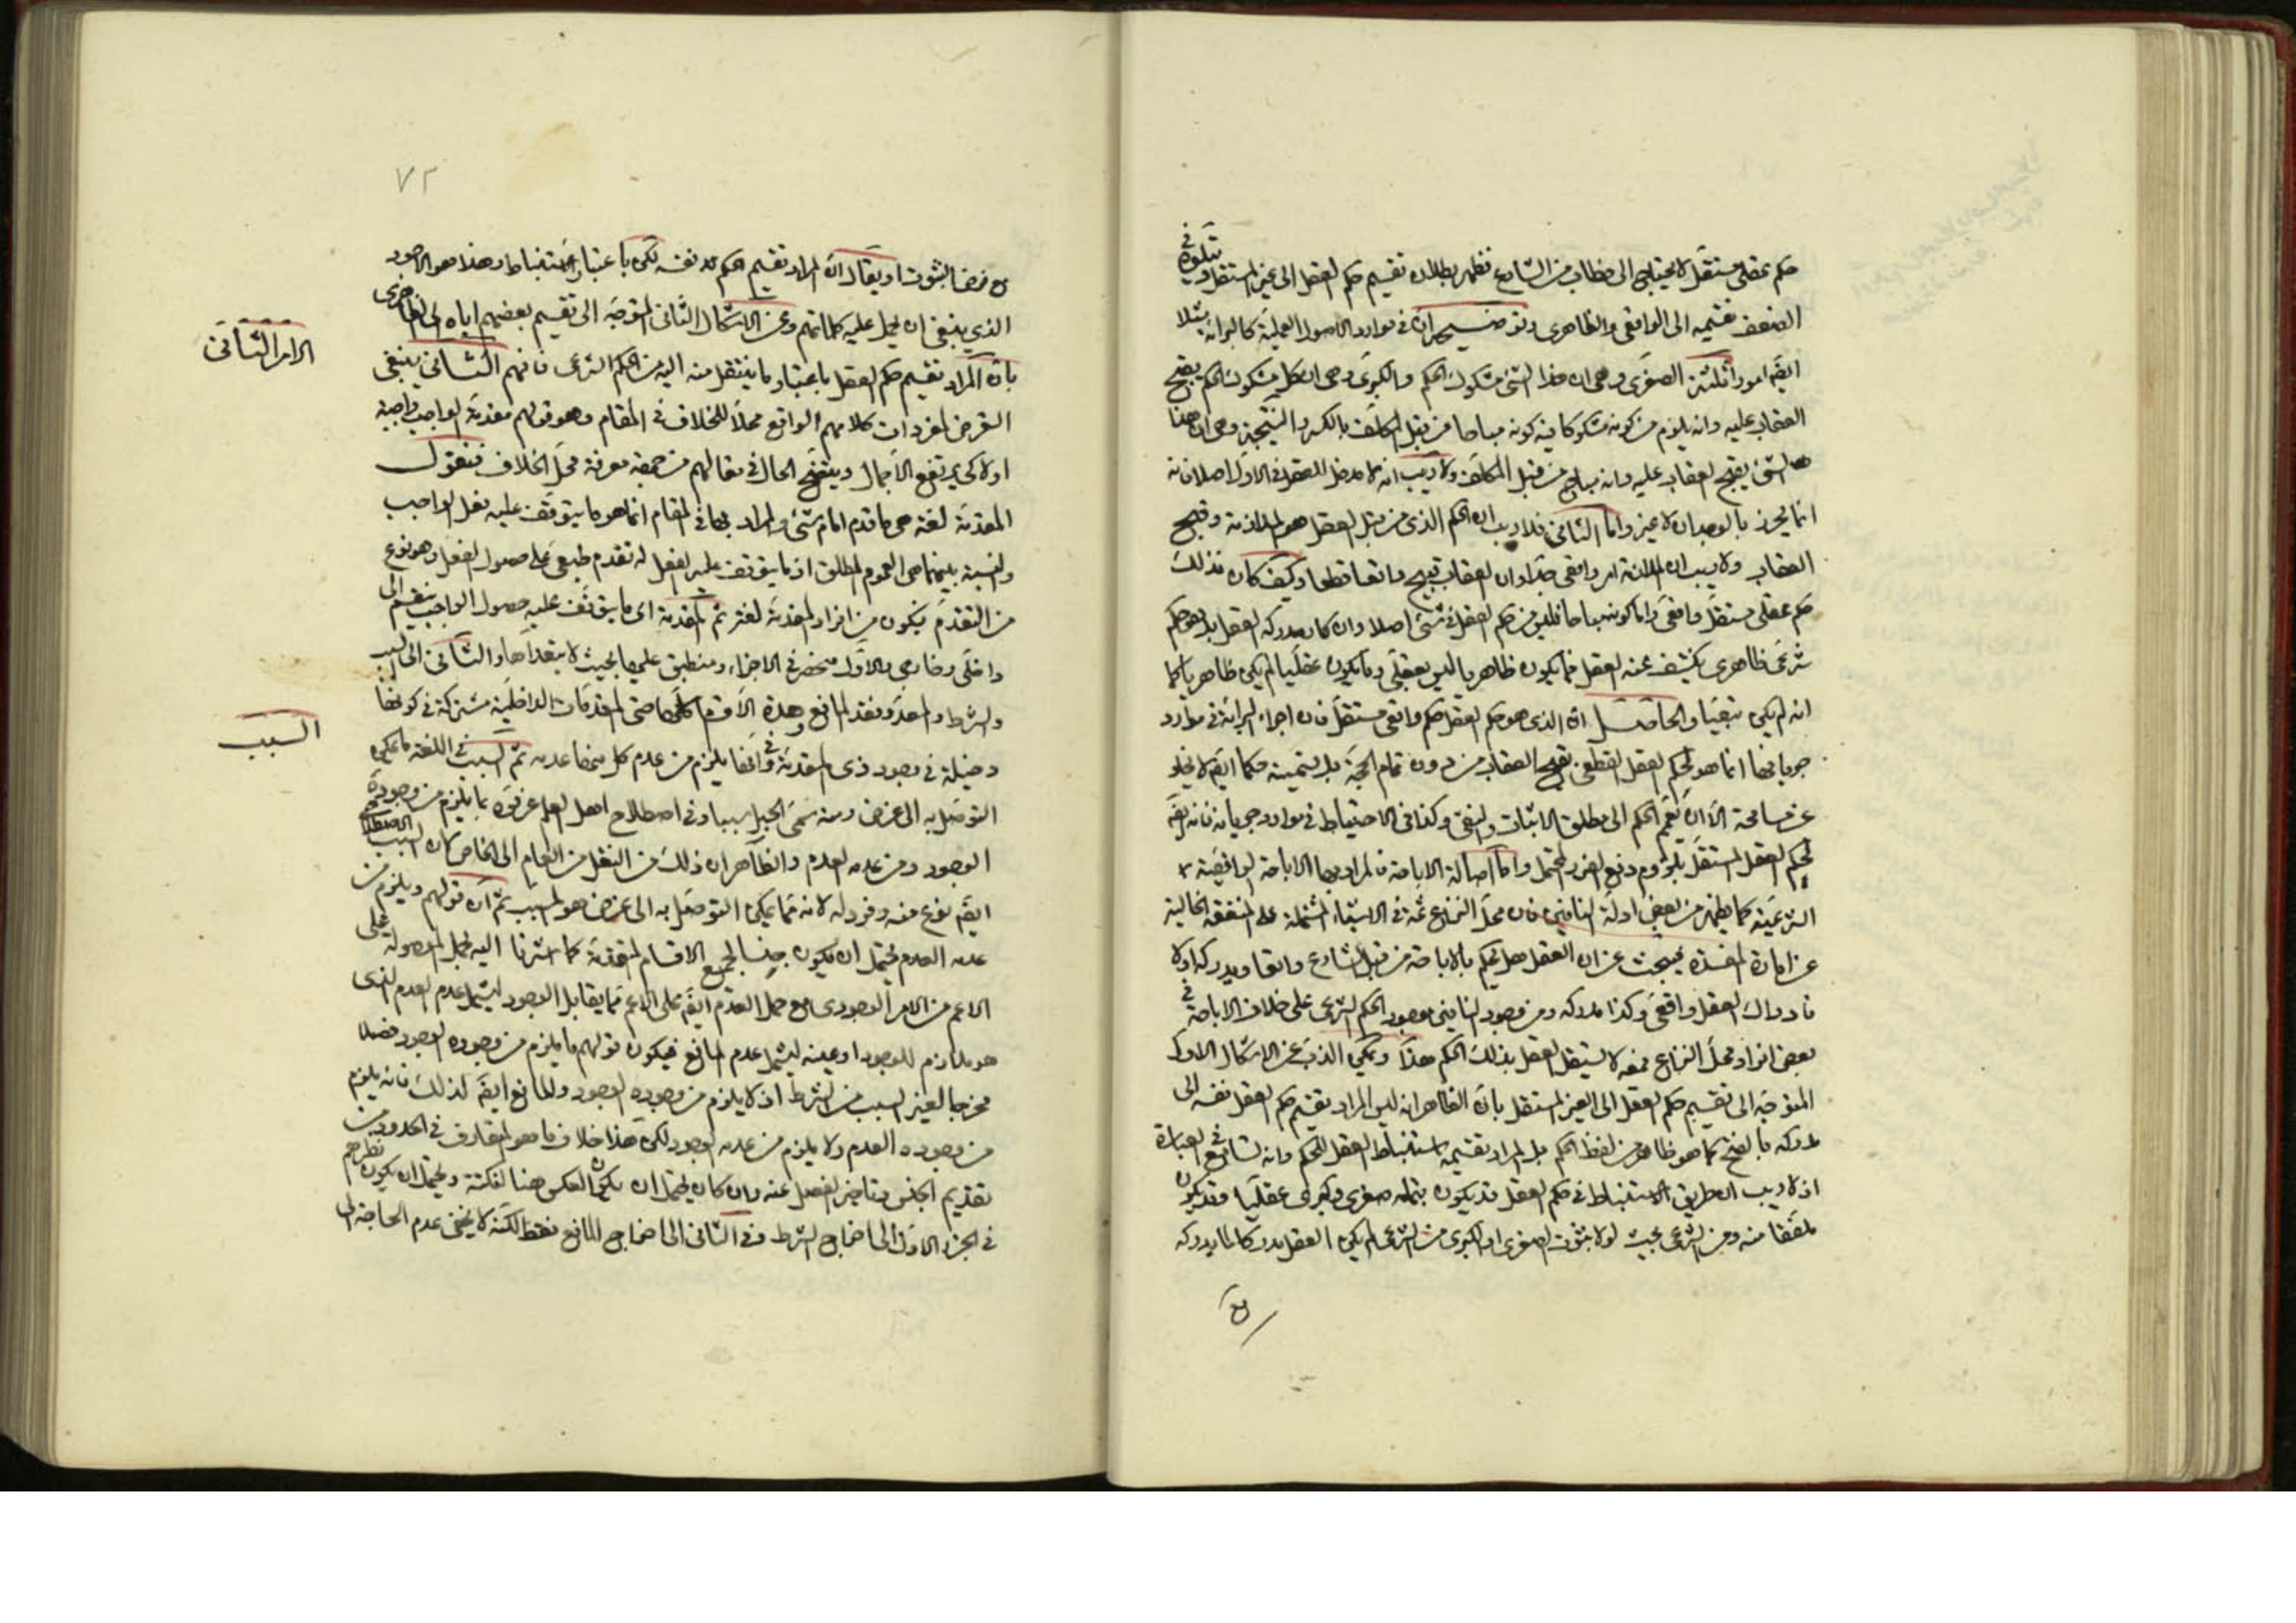 حكم عقلي مستقل لا يحتاج الى خطاب من الشارع فظهر بطلان تقسيم حكم العقل الى غير المستقل ويتلوه في
الضعف تقسيمه الى الواقعي والظاهري وتوضيحه ان في موارد الاصول العملية كالبرائة مثلا
ايضا امورا ثلثة الصغرى وهي ان هذا الشئ مشكوك الحكم والكبرى وهي ان كل مشكوك الحكم يقبح
العقاب عليه وانه يلزم من كونه مشكوكا فيه كونه مباحا من قبل المكلف بالكسر والنتيجة وهي ان هذا
الشئ يقبح العقاب عليه وانه مباح من قبل المكلف ولا ريب انه لا مدخل للعقل في الاول اصلا فانه
انما يحرز بالوجدان لا غير واما الثاني فلا ريب ان الحكم الذي من قبل العقل هو الملازمة وقبح
العقاب ولا ريب ان الملازمة امر واقعي جدا وان العقاب قبيح واقعا قطعا وكيف كان فذلك
حكم عقلي مستقل واقعي واما كونه مباحا فليس من حكم العقل في شئ اصلا وان كان يدركه العقل بل هو حكم
شرعي ظاهري يكشف عنه العقل فما يكون ظاهريا ليس بعقلي وما يكون عقليا لم يكن ظاهريا كما
انه لم يكن تبعيا والحاصل ان الذي هو حكم العقل حكم واقعي مستقل فان اجراء البرائة في موارد
جريانها انما هو لحكم العقل القطعي بقبح العقاب من دون تمام الحجة بل تسميته حكما ايضا لا يخلو
عن مسامحة الا ان يعمم الحكم الى مطلق الاثبات والنفي وكذا في الاحتياط في موارد جريانه فانه ايضا
لحكم العقل المستقل بلزوم دفع الضرر المحتمل واما اصالة الاباحة فالمراد بها الاباحة الواقعية
الشرعية كما يظهر من بعض ادلة النافين فان محل النزاع ثمة في الاشياء المشتملة على المنفعة الخالية
عن امارة المفسدة فيبحث عن ان العقل هل يحكم بالاباحة من قبل الشارع واقعا ويدركه او لا
فادراك العقل واقعي وكذا مدركه ومن وجود النافين بوجود الحكم الشرعي على خلاف الاباحة في
بعض افراد محل النزاع فمعه لا يستقل العقل بذلك الحكم هذا ويمكن الذب عن الاشكال الاول
المتوجه الى تقسيم حكم العقل الى الغير المستقل بان الظاهر انه ليس المراد تقسيم حكم العقل نفسه الى
مدركه بالفتح كما هو ظاهر من لفظ الحكم بل المراد تقسيمه استنباط العقل للحكم وانه تسامح في العبارة
اذ لا ريب ان طريق الاستنباط في حكم العقل قد يكون بتمامه صغرى وكبرى عقليا وقد يكون
ملفقا منه ومن الشرع بحيث لولا ثبوت الصغرى او الكبرى من الشرع لم يكن العقل مدركا لما يدركه
مع
٧٢
مع فرض الثبوت او يقال ان المراد تقسيم الحكم نفسه لكن باعتبار الاستنباط وهذا هو الاجود
الذي ينبغي ان يحمل عليه كلماتهم وعن الاشكال الثاني المتوجه الى تقسيم بعضهم اياه الى الظاهري
بان المراد تقسيم حكم العقل باعتبار ما ينتقل منه اليه من الحكم الشرعي فافهم الثاني ينبغي
الامر الثاني
التعرض لمفردات كلامهم الواقع محلا للخلاف في المقام وهو قولهم مقدمة الواجب واجبة
اولا كي يرتفع الاجمال ويتضح الحال في مقالهم من جهة معرفة محل الخلاف فنقول
المقدمة لغة هي ما قدم امام شئ والمراد بها في المقام انما هو ما يتوقف عليه فعل الواجب
والنسبة بينهما هي العموم المطلق اذ ما يتوقف عليه الفعل له تقدم طبعي على حصول الفعل وهو نوع
من التقدم فيكون من افراد المقدمة لغة ثم المقدمة اي ما يتوقف عليه حصول الواجب ينقسم الى
داخلي وخارجي والاول منحصر في الاجزاء ومنطبق عليها بحيث لا يتعداها والثاني الى السبب
والشرط والمعد وفقد المانع وهذه الاقسام كلها حتى المقدمات الداخلية مشتركة في كونها
السبب
دخيلة في وجود ذي المقدمة وفي انها يلزم من عدم كل منها عدمه ثم السبب في اللغة ما يمكن
التوصل به الى غرض ومنه سمي الحبل سببا وفي اصطلاح اهل العلم عرفوه بما يلزم من وجوده
الوجود ومن عدمه العدم والظاهر ان ذلك من النقل من العام الى الخاص فان السبب الاصطلاحي
ايضا نوع منه وفرد له لانه مما يمكن التوصل به الى غرض هو المسبب ثم ان قولهم ويلزم من
عدمه العدم يحتمل ان يكون جنسا لجميع الاقسام المتقدمة كما اشرنا اليه يحمل الموصولة على
الاعم من الامر الوجودي مع حمل العدم ايضا على الاعم مما يقابل الوجود ليشمل عدم العدم الذي
هو ملازم للوجود او عينه ليشمل عدم المانع فيكون قولهم ما يلزم من وجوده الوجود فصلا
مخرجا لغير السبب من الشرط اذ لا يلزم من وجوده الوجود والمانع ايضا كذلك فانه يلزم
من وجوده العدم ولا يلزم من عدمه الوجود لكن هذا خلاف ما هو المتعارف في الحدود من
تقديم الجنس وتاخير الفصل عنه وان كان يحتمل ان يكون العكس هنا لنكتة ويحتمل ان يكون نظرهم
في الجزء الاول الى اخراج الشرط وفي الثاني الى اخراج المانع فقط لكنه لا يخفى عدم الحاجة الى